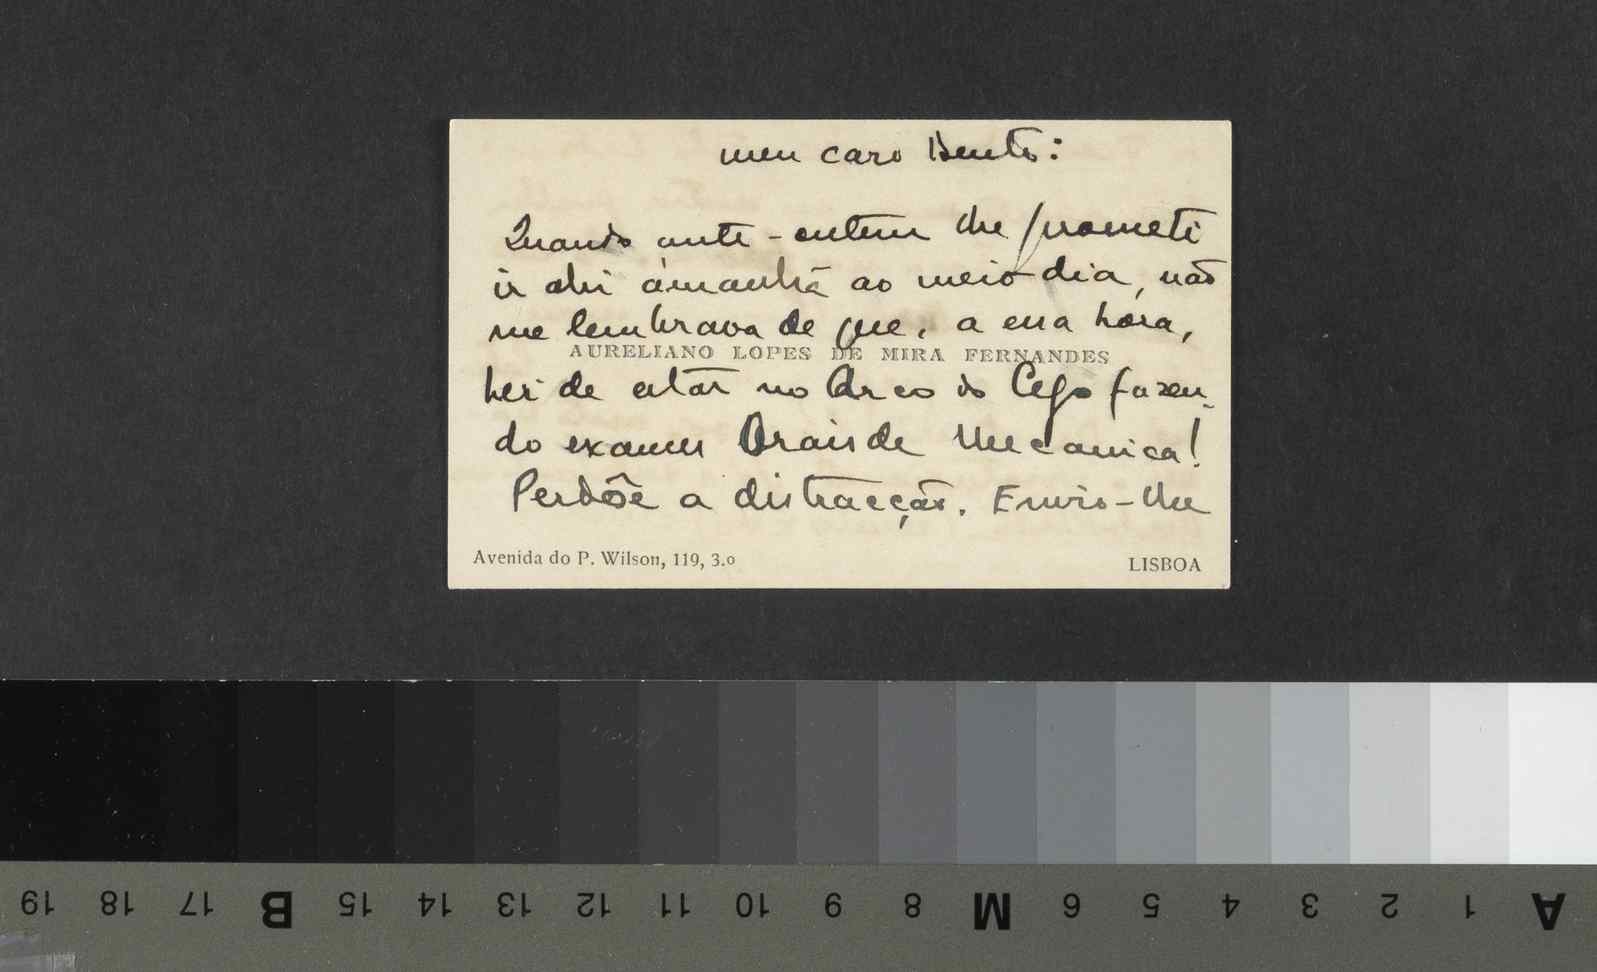 meu caro Bento:
Quando ante-ontem lhe prometi
ir ahi ámanhã ao meio dia, não
me lembrava de que, a essa hora,
AURELIANO LOPES DE MIRA FERNANDES
hei de estar no Arco do Cego fazen-
do exames Orais de Mecanica!
Perdôe a distracção. Envio-lhe
Avenida do P. Wilson, 119, 3.o
LISBOA
19 18 17 B 15 14 13 12 11 10 9 8 M 6 5 4 3 2 1 A